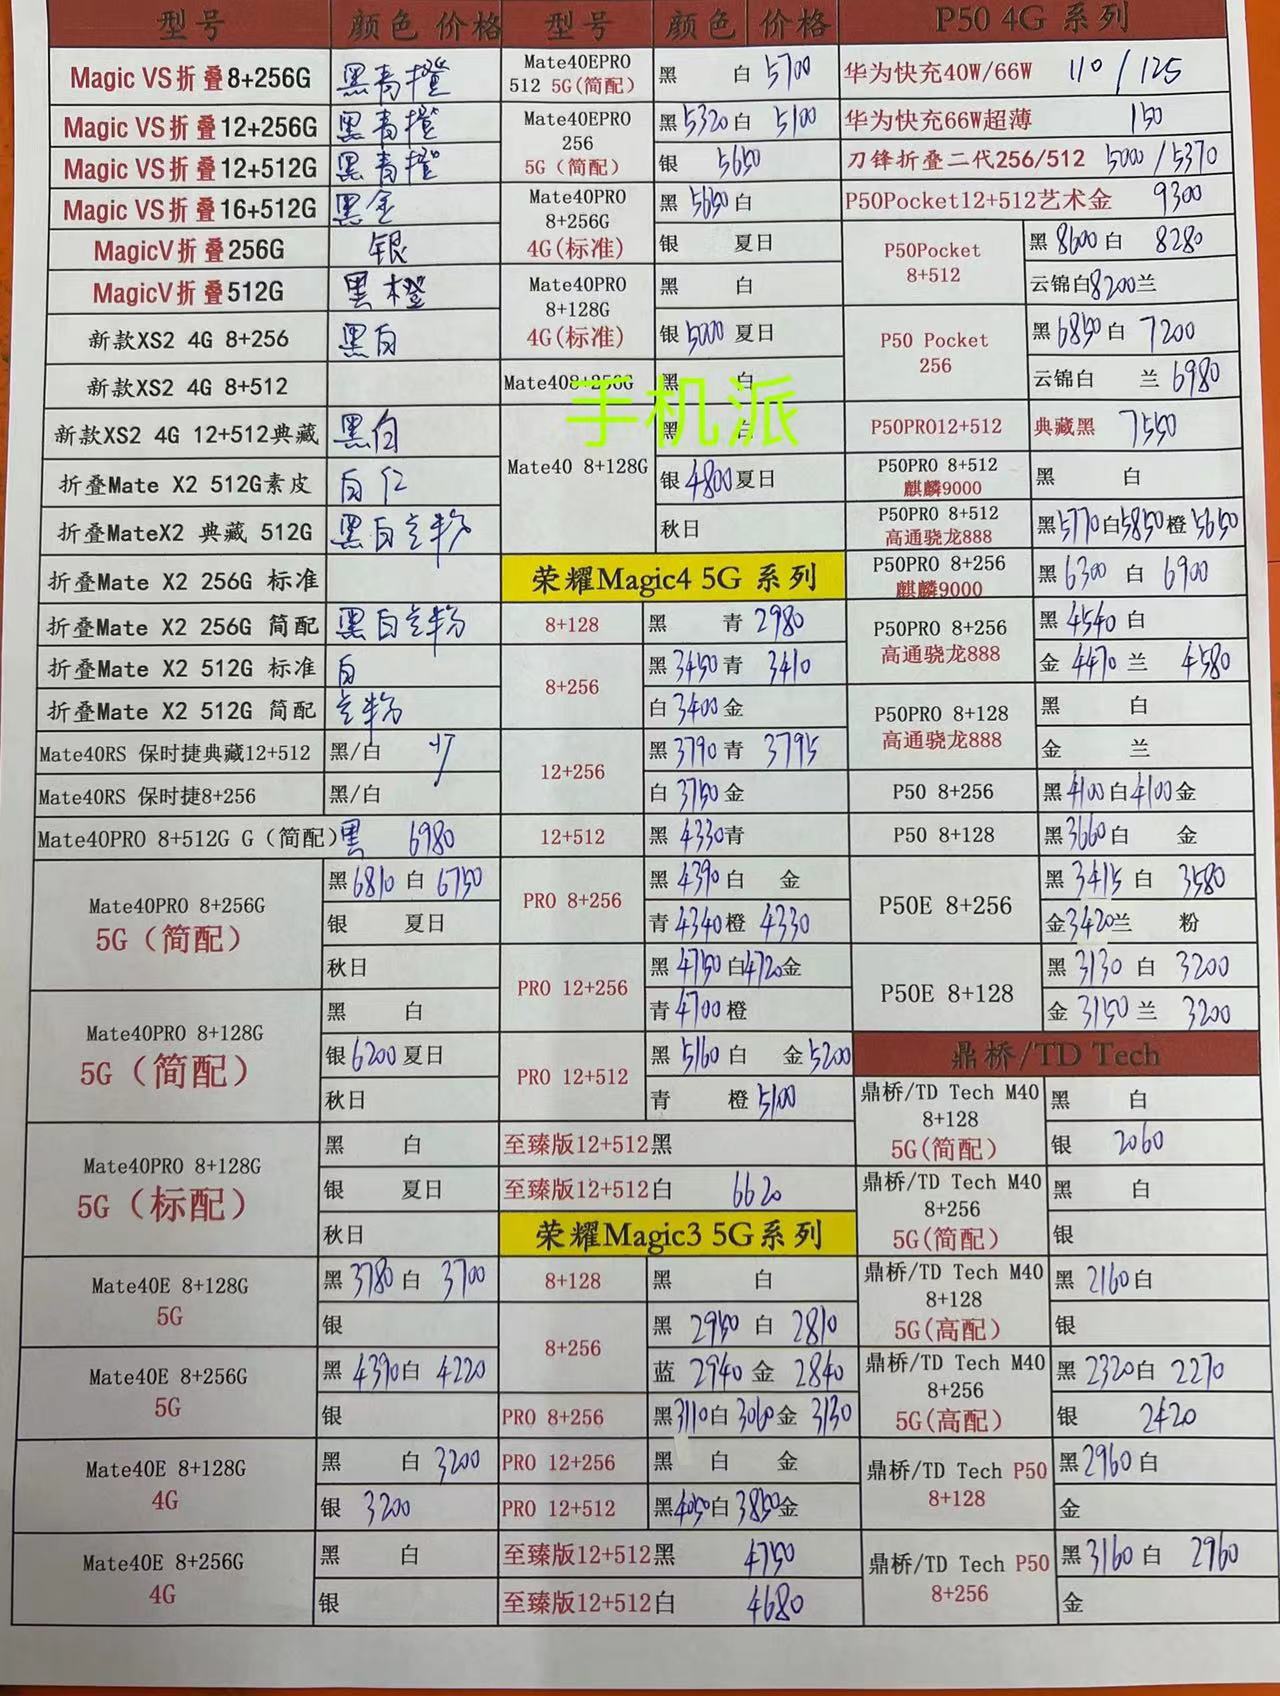 型号 颜色 价格
Magic VS折叠8+256G 黑青橙
Magic VS折叠12+256G 黑青橙
Magic VS折叠12+512G 黑青橙
Magic VS折叠16+512G 黑金
MagicV折叠256G 银
MagicV折叠512G 黑橙
新款XS2 4G 8+256 黑白
新款XS2 4G 8+512
新款XS2 4G 12+512典藏 黑白
折叠Mate X2 512G素皮 白红
折叠MateX2 典藏 512G 黑白兰粉
折叠Mate X2 256G 标准
折叠Mate X2 256G 简配 黑白兰粉
折叠Mate X2 512G 标准 白
折叠Mate X2 512G 简配 兰粉
Mate40RS 保时捷典藏12+512 黑/白
Mate40RS 保时捷8+256 黑/白
Mate40PRO 8+512G G（简配） 黑 6980
Mate40PRO 8+256G
5G（简配）
黑6810 白 6750
银 夏日
秋日
Mate40PRO 8+128G
5G（简配）
黑 白
银6200夏日
秋日
Mate40PRO 8+128G
5G（标配）
黑 白
银 夏日
秋日
Mate40E 8+128G
5G
黑3780白 3700
银
Mate40E 8+256G
5G
黑 4390白 4220
银
Mate40E 8+128G
4G
黑 白 3200
银 3200
Mate40E 8+256G
4G
黑 白
银
型号 颜色 价格
Mate40EPRO
512 5G(简配)
黑 白 5700
Mate40EPRO
256
5G（简配）
黑5320白 5100
银 5650
Mate40PRO
8+256G
4G(标准)
黑 5650白
银 夏日
Mate40PRO
8+128G
4G(标准)
黑 白
银5000夏日
Mate408+256G 黑 白
手机派
Mate40 8+128G
黑 白
银4800夏日
秋日
荣耀Magic4 5G 系列
8+128 黑 青 2980
8+256
黑3450青 3410
白3400金
12+256
黑3790青 3795
白3750金
12+512 黑 4330青
PRO 8+256
黑4390白 金
青4340橙 4330
PRO 12+256
黑4750白4720金
青4700橙
PRO 12+512
黑 5160白 金5200
青 橙5100
至臻版12+512黑
至臻版12+512白 6620
荣耀Magic3 5G系列
8+128 黑 白
8+256
黑 2950 白 2810
蓝 2940 金 2840
PRO 8+256 黑3110白3060金 3130
PRO 12+256 黑 白 金
PRO 12+512 黑4050白3850金
至臻版12+512黑 4750
至臻版12+512白 4680
P50 4G 系列
华为快充40W/66W 110 / 125
华为快充66W超薄 150
刀锋折叠二代256/512 5000 / 5370
P50Pocket12+512艺术金 9300
P50Pocket
8+512
黑 8600白 8280
云锦白8200兰
P50 Pocket
256
黑6850白 7200
云锦白 兰 6980
P50PRO12+512 典藏黑 7550
P50PRO 8+512
麒麟9000
黑 白
P50PRO 8+512
高通骁龙888
黑5770白5850橙5650
P50PRO 8+256
麒麟9000
黑6300 白 6900
P50PRO 8+256
高通骁龙888
黑4540白
金 4470兰 4580
P50PRO 8+128
高通骁龙888
黑 白
金 兰
P50 8+256 黑4100白4100金
P50 8+128 黑3660白 金
P50E 8+256
黑 3415 白 3580
金3420兰 粉
P50E 8+128
黑 3130 白 3200
金 3150兰 3200
鼎桥/TD Tech
鼎桥/TD Tech M40
8+128
5G(简配)
黑 白
银 2060
鼎桥/TD Tech M40
8+256
5G(简配)
黑 白
银
鼎桥/TD Tech M40
8+128
5G(高配)
黑 2160白
银
鼎桥/TD Tech M40
8+256
5G(高配)
黑 2320白 2270
银 2420
鼎桥/TD Tech P50
8+128
黑2960白
金
鼎桥/TD Tech P50
8+256
黑3160白 2960
金